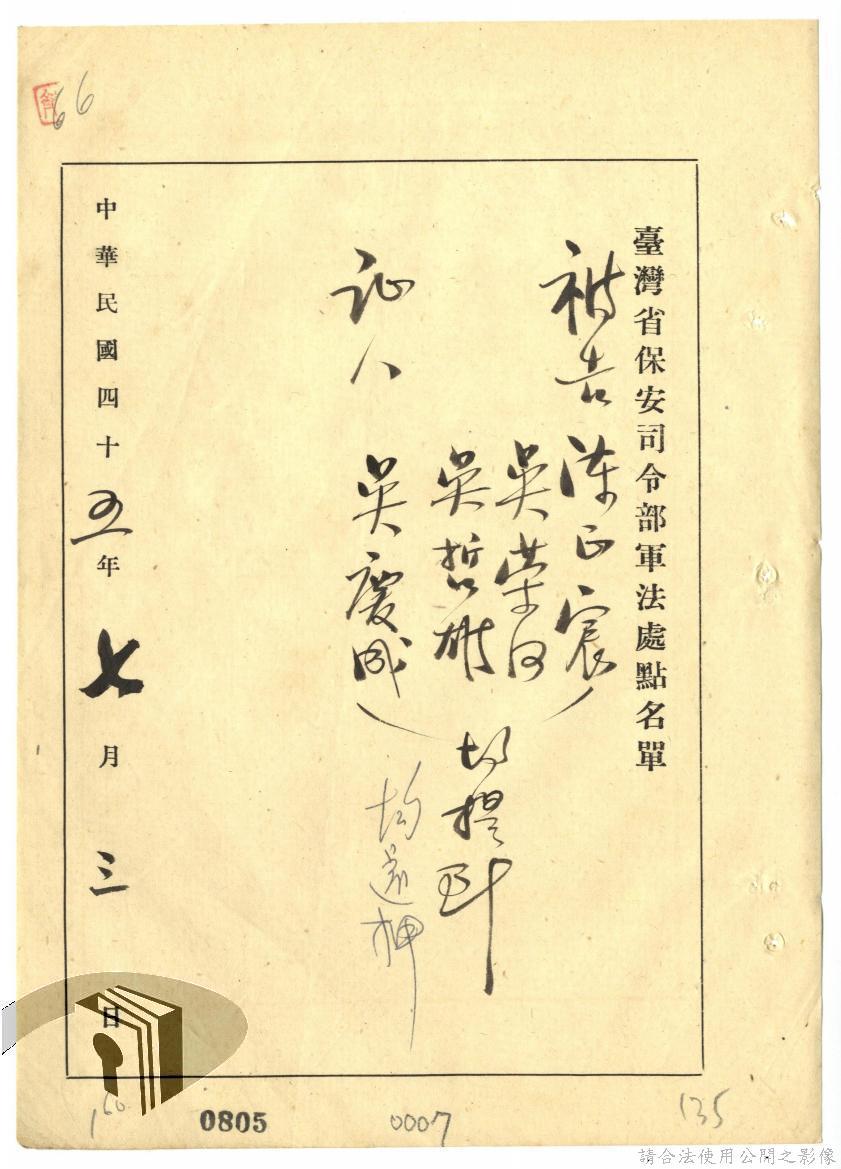 臺灣省保安司令部軍法處點名單
被告 陳正宸
吳荣河
吳哲雄
均提到
証人 吳慶成
均還押
中華民國四十五年七月三日
66
160
0805
0007
135
請合法使用公開之影像